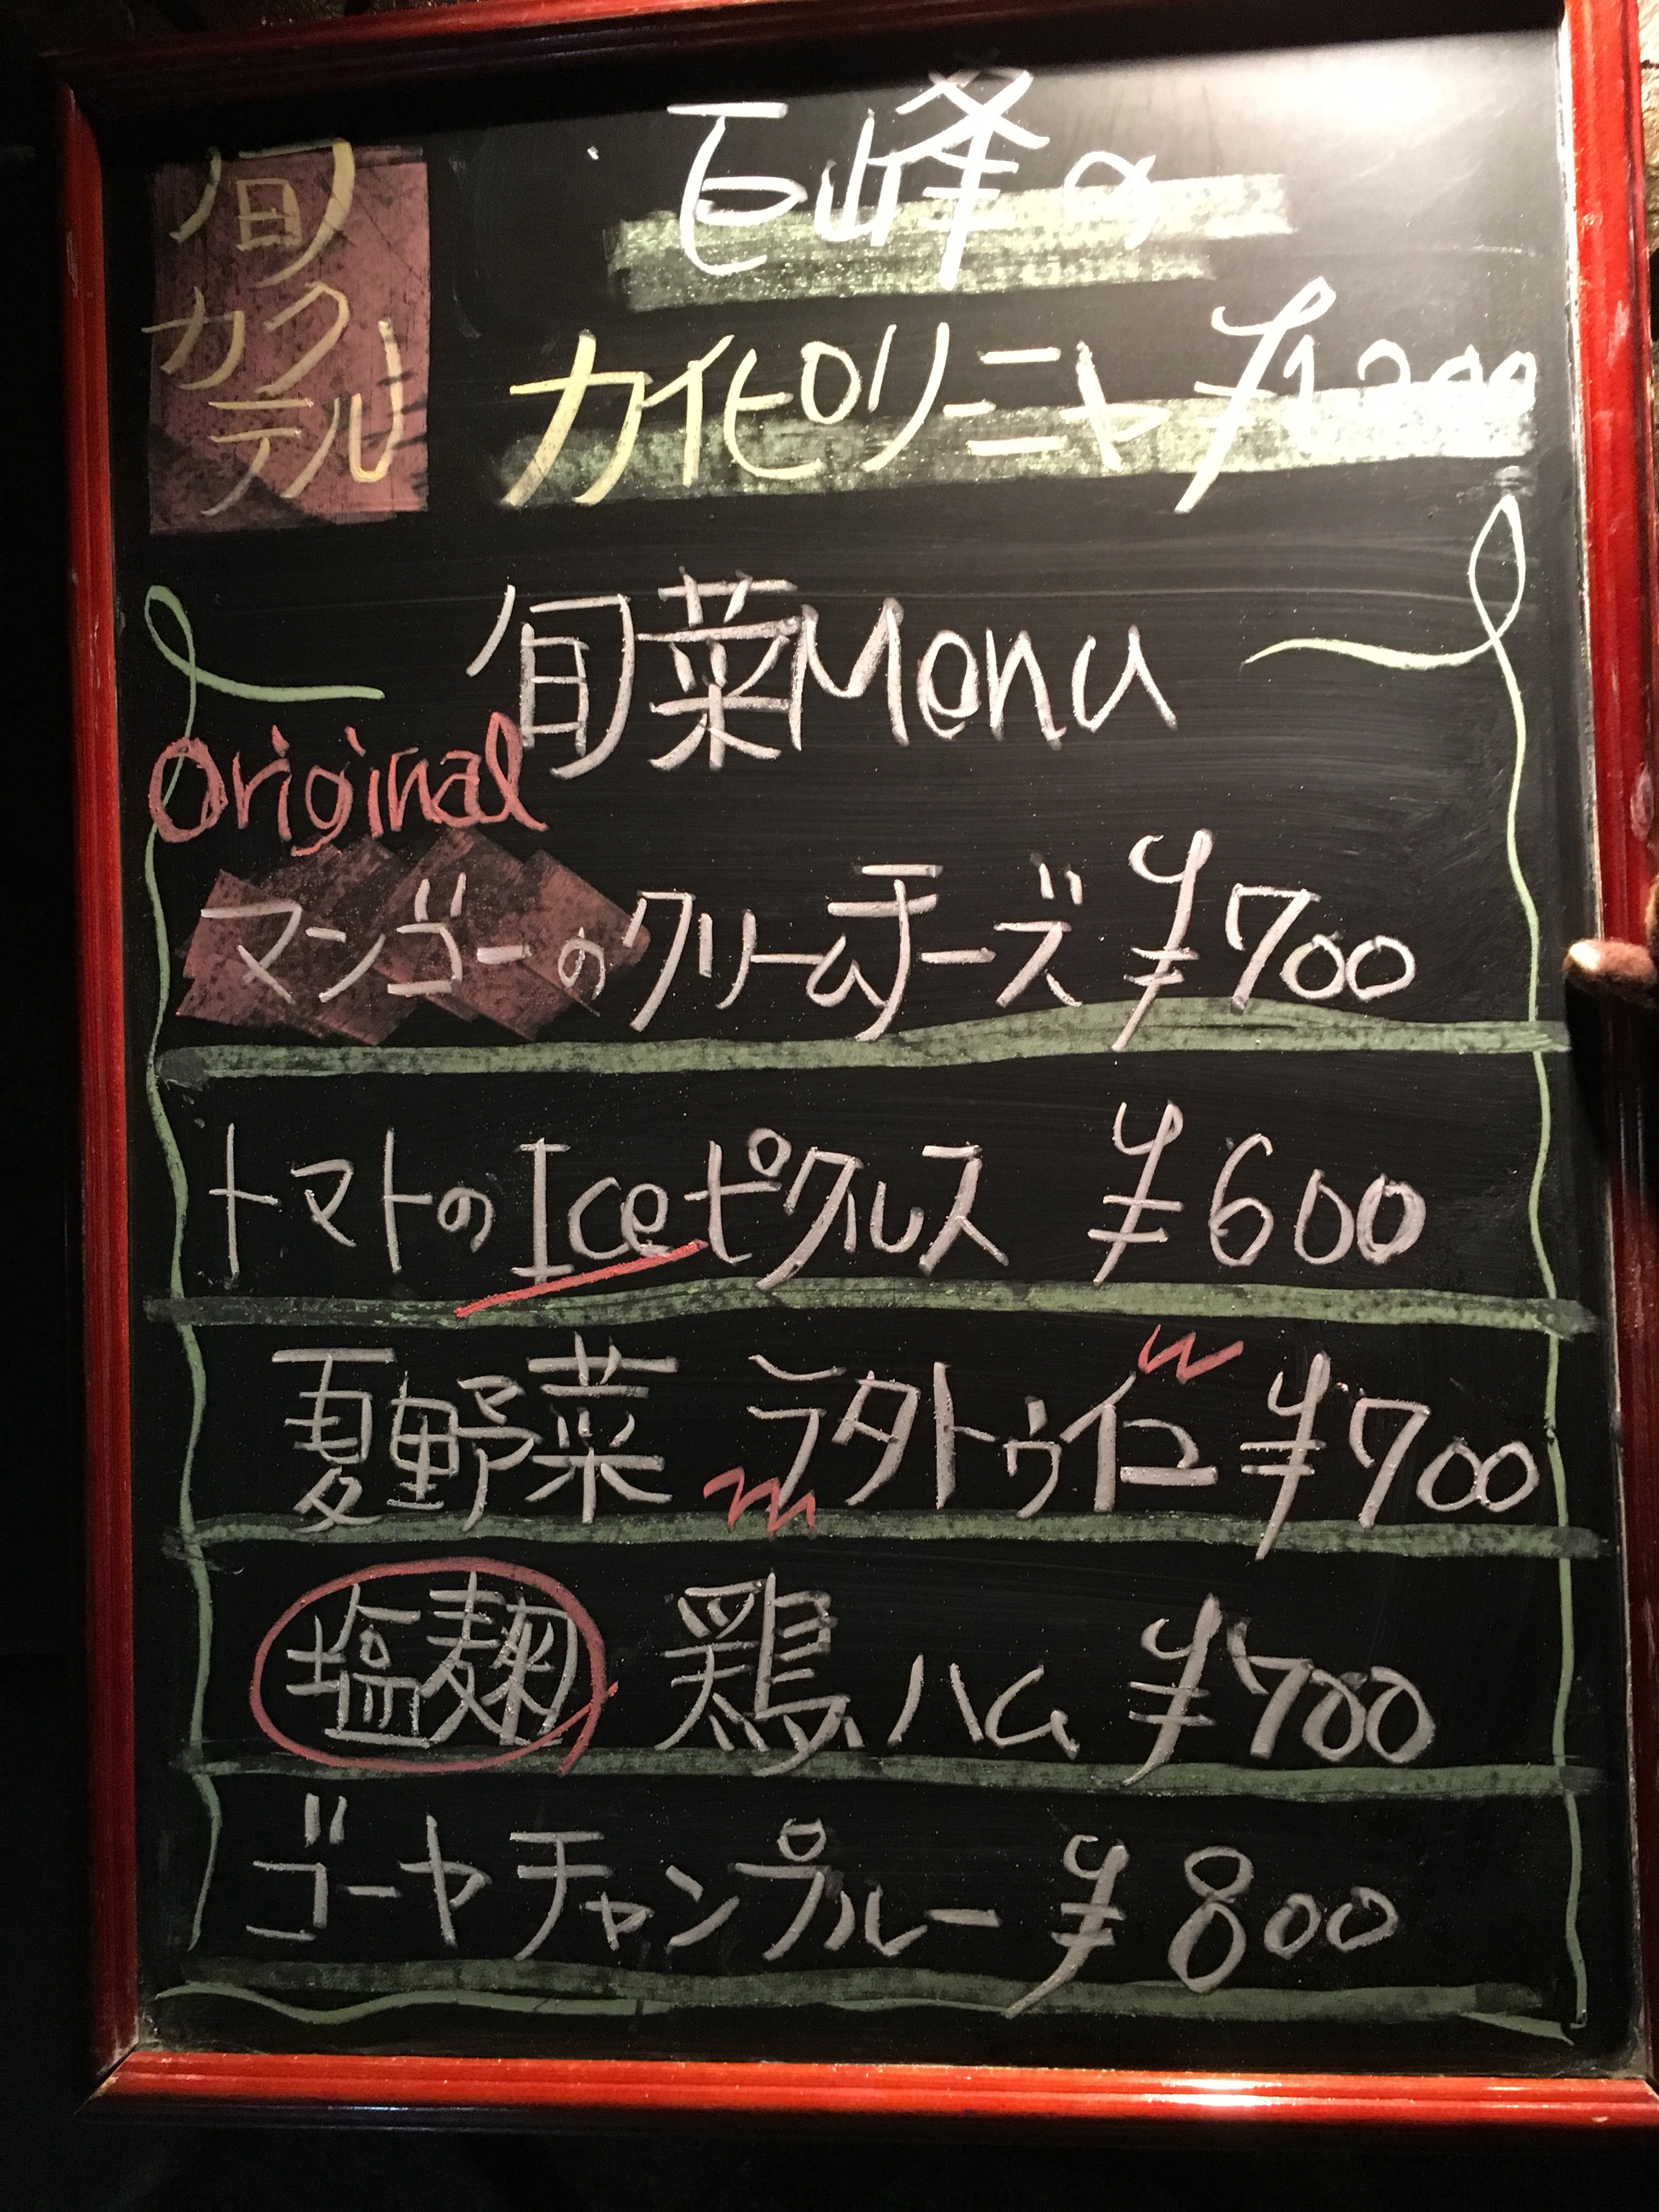 旬
カク
テル
巨峰の
カイピリーニャ ¥1,200
旬菜Menu
Original
マンゴーのクリームチーズ ¥700
トマトのIceピクルス ¥600
夏野菜 ラタトゥイユ ¥700
塩麹 鶏ハム ¥700
ゴーヤチャンプルー ¥800